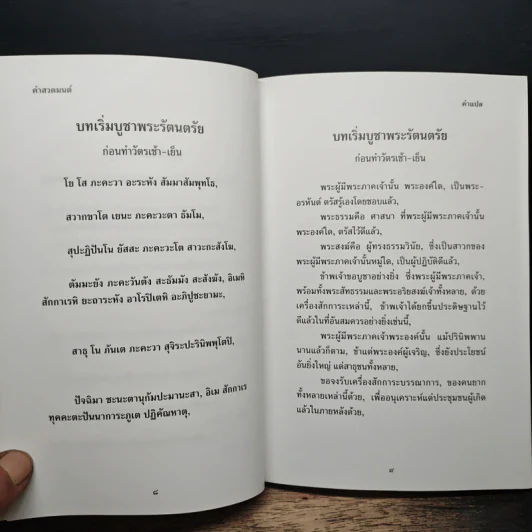 คำสวดมนต์
บทเริ่มบูชาพระรัตนตรัย
ก่อนทำวัตรเช้า-เย็น
โย โส ภะคะวา อะระหัง สัมมาสัมพุทโธ,
สวากขาโต เยนะ ภะคะวะตา ธัมโม,
สุปะฏิปันโน ยัสสะ ภะคะวะโต สาวะกะสังโฆ,
ตัมมะยัง ภะคะวันตัง สะธัมมัง สะสังฆัง, อิเมหิ
สักกาเรหิ ยะถาระหัง อาโรปิเตหิ อะภิปูชะยามะ,
สาธุ โน ภันเต ภะคะวา สุจิระปะรินิพพุโตปิ,
ปัจฉิมา ชะนะตานุกัมปะมานะสา, อิเม สักกาเร
ทุคคะตะปัณณาการะภูเต ปฏิคัณหาตุ,
๘
คำแปล
บทเริ่มบูชาพระรัตนตรัย
ก่อนทำวัตรเช้า-เย็น
พระผู้มีพระภาคเจ้านั้น พระองค์ใด, เป็นพระ-
อรหันต์ ตรัสรู้เองโดยชอบแล้ว,
พระธรรมคือ ศาสนา ที่พระผู้มีพระภาคเจ้านั้น
พระองค์ใด, ตรัสไว้ดีแล้ว,
พระสงฆ์คือ ผู้ทรงธรรมวินัย, ซึ่งเป็นสาวกของ
พระผู้มีพระภาคเจ้านั้นหมู่ใด, เป็นผู้ปฏิบัติดีแล้ว,
ข้าพเจ้าขอบูชาอย่างยิ่ง ซึ่งพระผู้มีพระภาคเจ้า,
พร้อมทั้งพระสัทธรรมและพระอริยสงฆ์เจ้าทั้งหลาย, ด้วย
เครื่องสักการะเหล่านี้, ข้าพเจ้าได้ยกขึ้นประดิษฐานไว้
ดีแล้วในที่อันสมควรอย่างยิ่งเช่นนี้,
พระผู้มีพระภาคเจ้าพระองค์นั้น แม้ปรินิพพาน
นานแล้วก็ตาม, ข้าแต่พระองค์ผู้เจริญ, ซึ่งยังประโยชน์
อันยิ่งใหญ่ แต่สาธุชนทั้งหลาย,
ขอจงรับเครื่องสักการะบรรณาการ, ของคนยาก
ทั้งหลายเหล่านี้ด้วย, เพื่ออนุเคราะห์แด่ประชุมชนผู้เกิด
แล้วในภายหลังด้วย,
๘